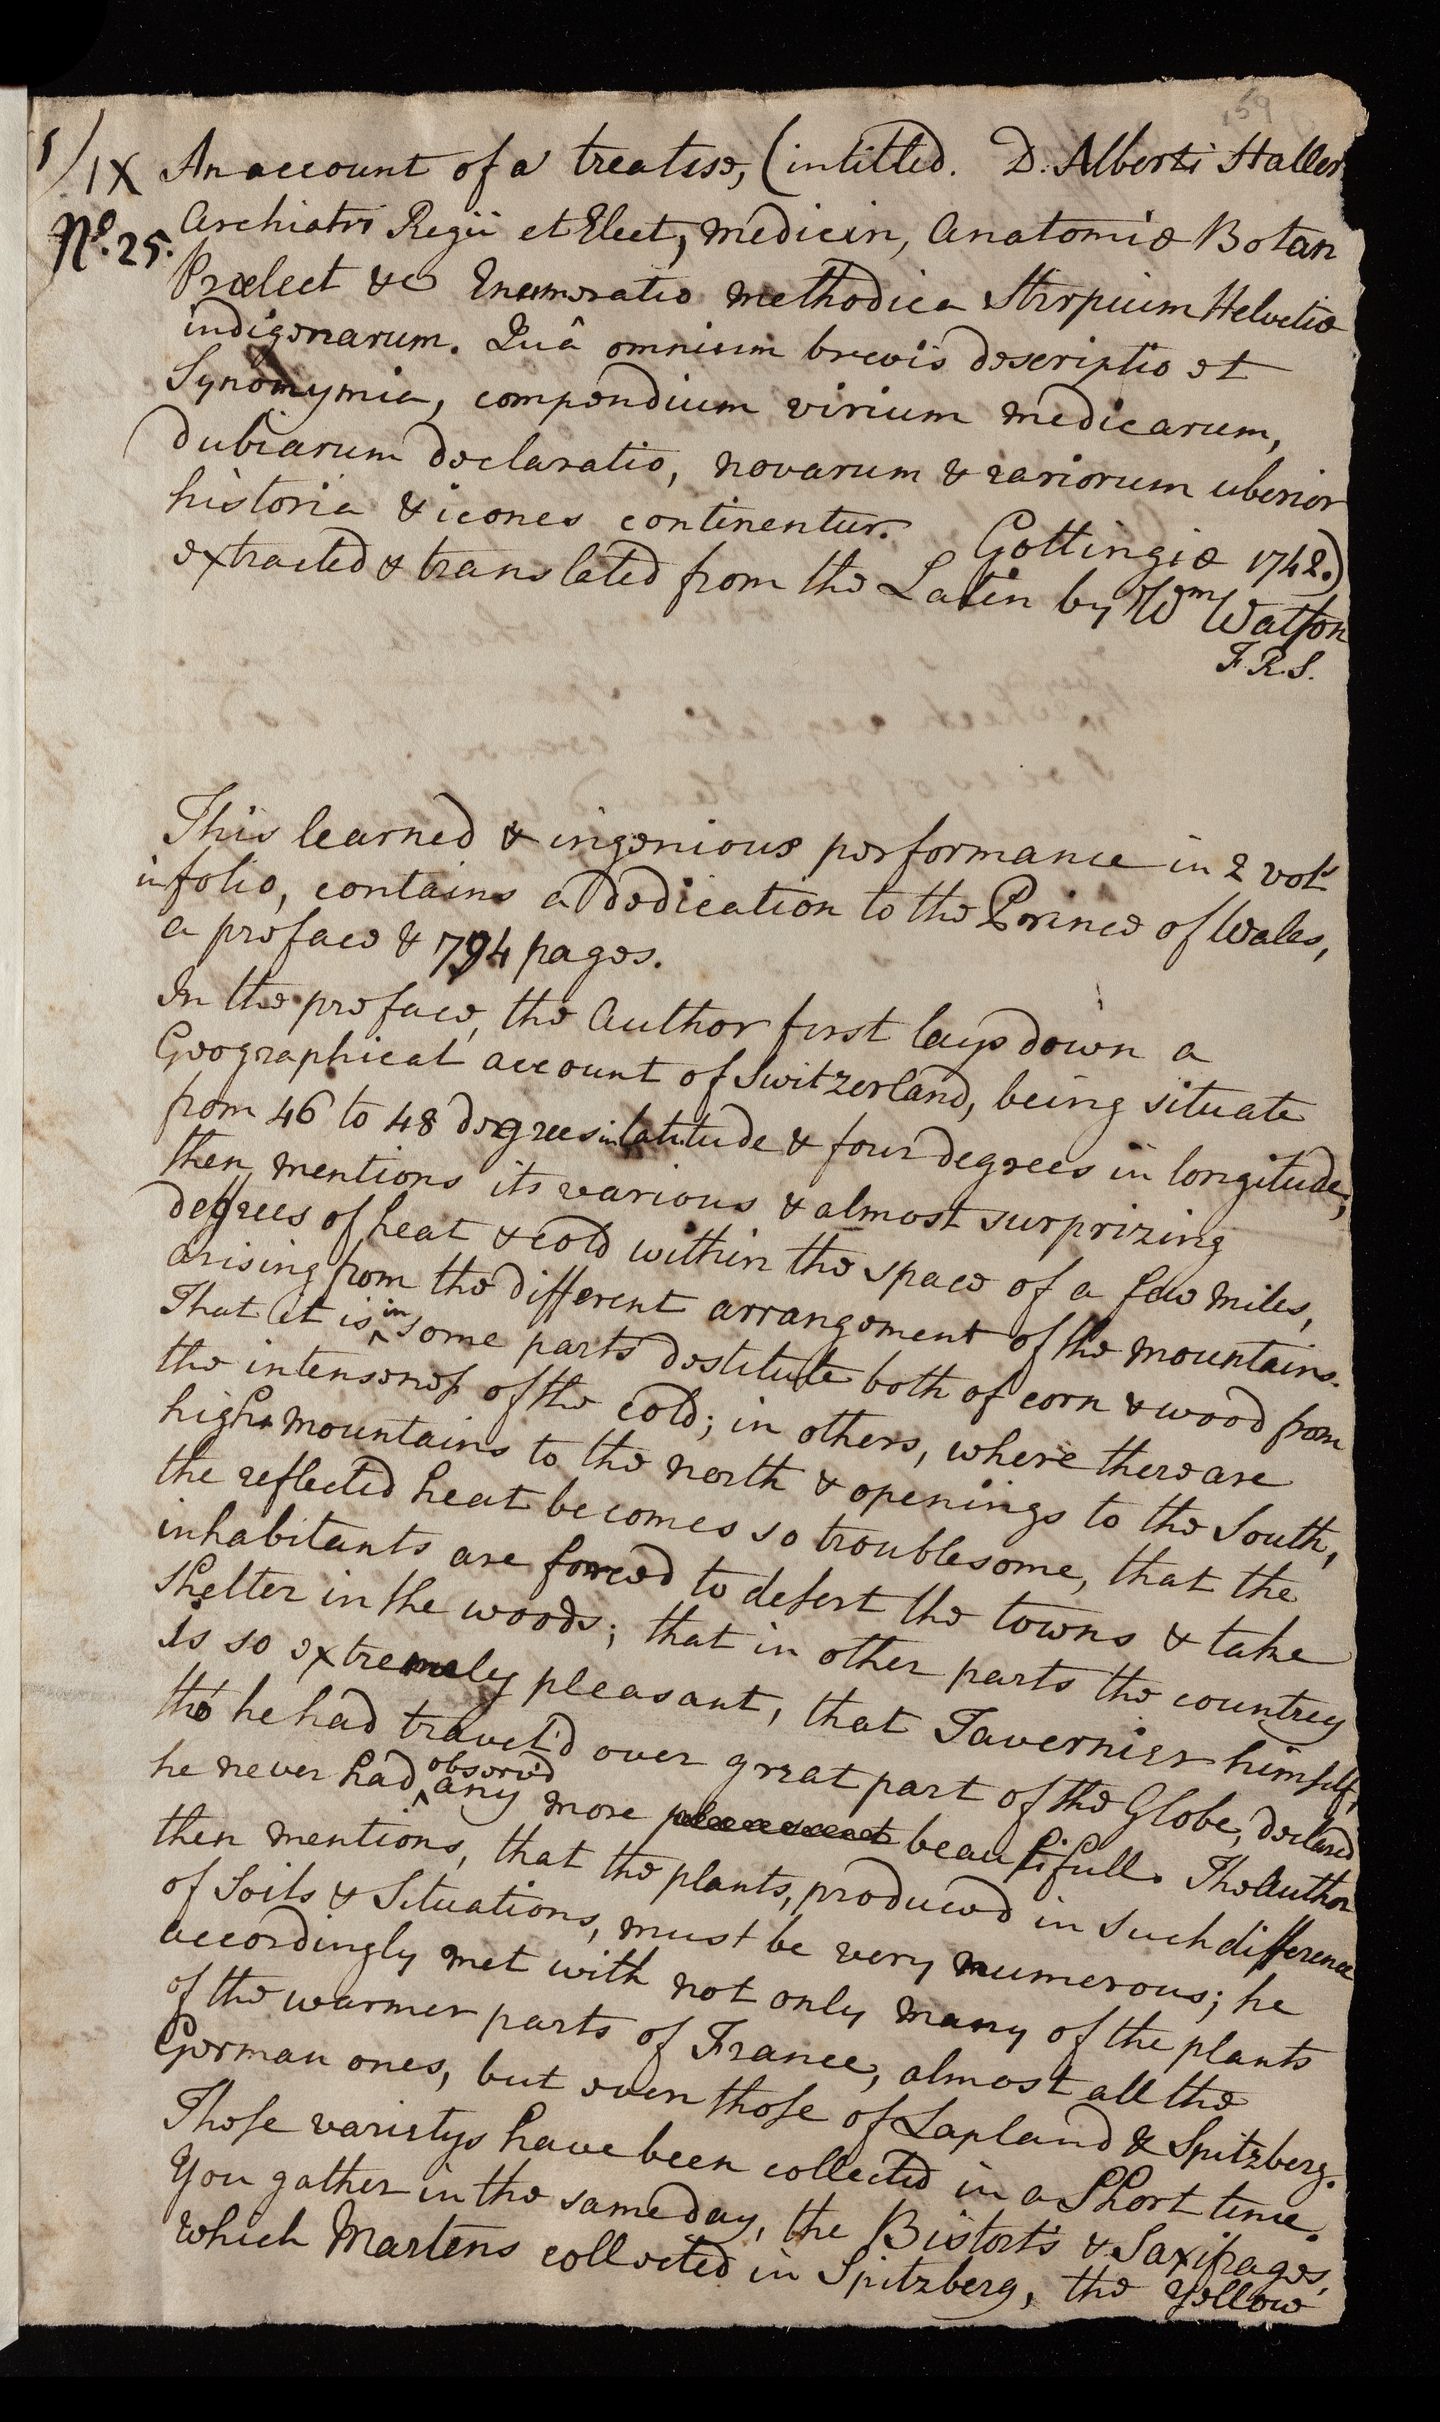 159
5/IX An account of a treatise, (intitled. D. Alberti Haller
No. 25. Archiatri Regii et Elect, medicin, Anatomiæ Botan
Prælect &c Enumeratio methodica Stirpium Helvetiæ
indigenarum. Quâ omnium brevis descriptio et
Synonymia, compendium virium medicarum,
dubiarum declaratio, novarum & rariorum uberior
historia & icones continentur. Gottingiæ 1742.)
extracted & translated from the Latin by Wm Watson
F.R.S.
This learned & ingenious performance in 2 vols
in folio, contains a dedication to the Prince of Wales,
a preface & 794 pages.
In the preface, the Author first lays down a
Geographical account of Switzerland, being situate
from 46 to 48 degrees in latitude & four degrees in longitude;
then mentions its various & almost surprizing
degrees of heat & cold within the space of a few miles,
arising from the different arrangement of the mountains.
That it is in some parts destitute both of corn & wood from
the intenseness of the cold; in others, where there are
high mountains to the north & openings to the South,
the reflected heat becomes so troublesome, that the
inhabitants are forced to desert the towns & take
shelter in the woods; that in other parts the countrey
is so extremely pleasant, that Tavernier himself,
tho' he had travel'd over great part of the Globe, declared
he never had observ'd any more pleasant beautifull. The Author
then mentions, that the plants, produced in such difference
of Soils & Situations, must be very numerous; he
accordingly met with not only many of the plants
of the warmer parts of France, almost all the
German ones, but even those of Lapland & Spitzberg.
These varietys have been collected in a short time.
You gather in the same day, the Bistorts & Saxifrages,
which Martens collected in Spitzberg, the yellow